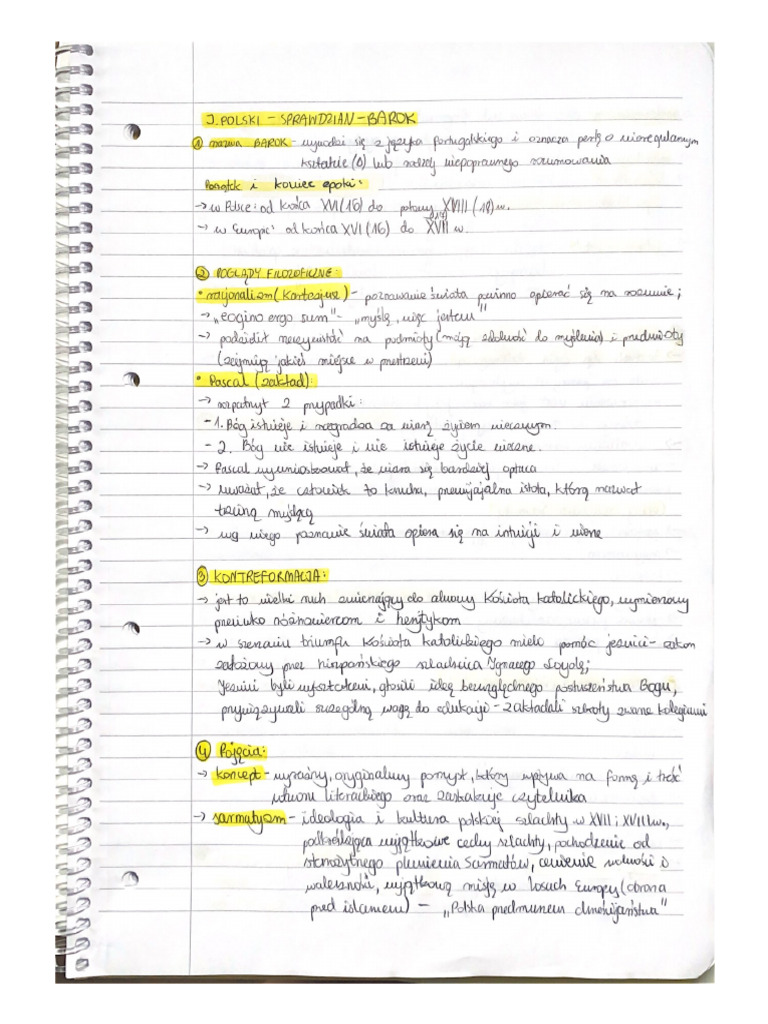 J. POLSKI - SPRAWDZIAN - BAROK
① nazwa BAROK - wywodzi się z języka portugalskiego i oznacza perłę o nieregularnym
kształcie (0) lub rodzaj niepoprawnego rozumowania
Początek i koniec epoki:
→ w Polsce: od końca XVI (16) do połowy XVIII (18) w.
→ w Europie: od końca XVI (16) do XVII (17) w.
② POGLĄDY FILOZOFICZNE:
• racjonalizm (Kartezjusz) - poznawanie świata powinno opierać się na rozumie;
→ "cogito ergo sum" - "myślę, więc jestem"
→ podzielił rzeczywistość na podmioty (mają zdolność do myślenia) i przedmioty
(zajmują jakieś miejsce w przestrzeni)
• Pascal (zakład):
→ rozpatrzył 2 przypadki:
- 1. Bóg istnieje i nagradza za wiarę życiem wiecznym.
- 2. Bóg nie istnieje i nie istnieje życie wieczne.
→ Pascal wywnioskował, że wiara się bardziej opłaca
→ uważał, że człowiek to krucha, przemijalna istota, którą nazwał
trzciną myślącą
→ wg niego poznanie świata opiera się na intuicji i wierze
③ KONTREFORMACJA:
→ jest to wielki ruch zmierzający do odnowy Kościoła katolickiego, wymierzony
przeciwko różnowiercom i heretykom
→ w szerzeniu triumfu Kościoła katolickiego mieli pomóc jezuici - zakon
założony przez hiszpańskiego szlachcica Ignacego Loyolę;
Jezuici byli wykształceni, głosili ideę bezwzględnego posłuszeństwa Bogu,
przywiązywali szczególną wagę do edukacji - zakładali szkoły zwane kolegiami
④ Pojęcia:
→ koncept - wyraźny, oryginalny pomysł, który wpływa na formę i treść
utworu literackiego oraz zaskakuje czytelnika
→ sarmatyzm - ideologia i kultura polskiej szlachty w XVII i XVIII w.,
podkreślająca wyjątkowe cechy szlachty, pochodzenie od
starożytnego plemienia Sarmatów, cenienie wolności i
waleczności, wyjątkową misję w losach Europy (obrona
przed islamem) - "Polska przedmurzem chrześcijaństwa"